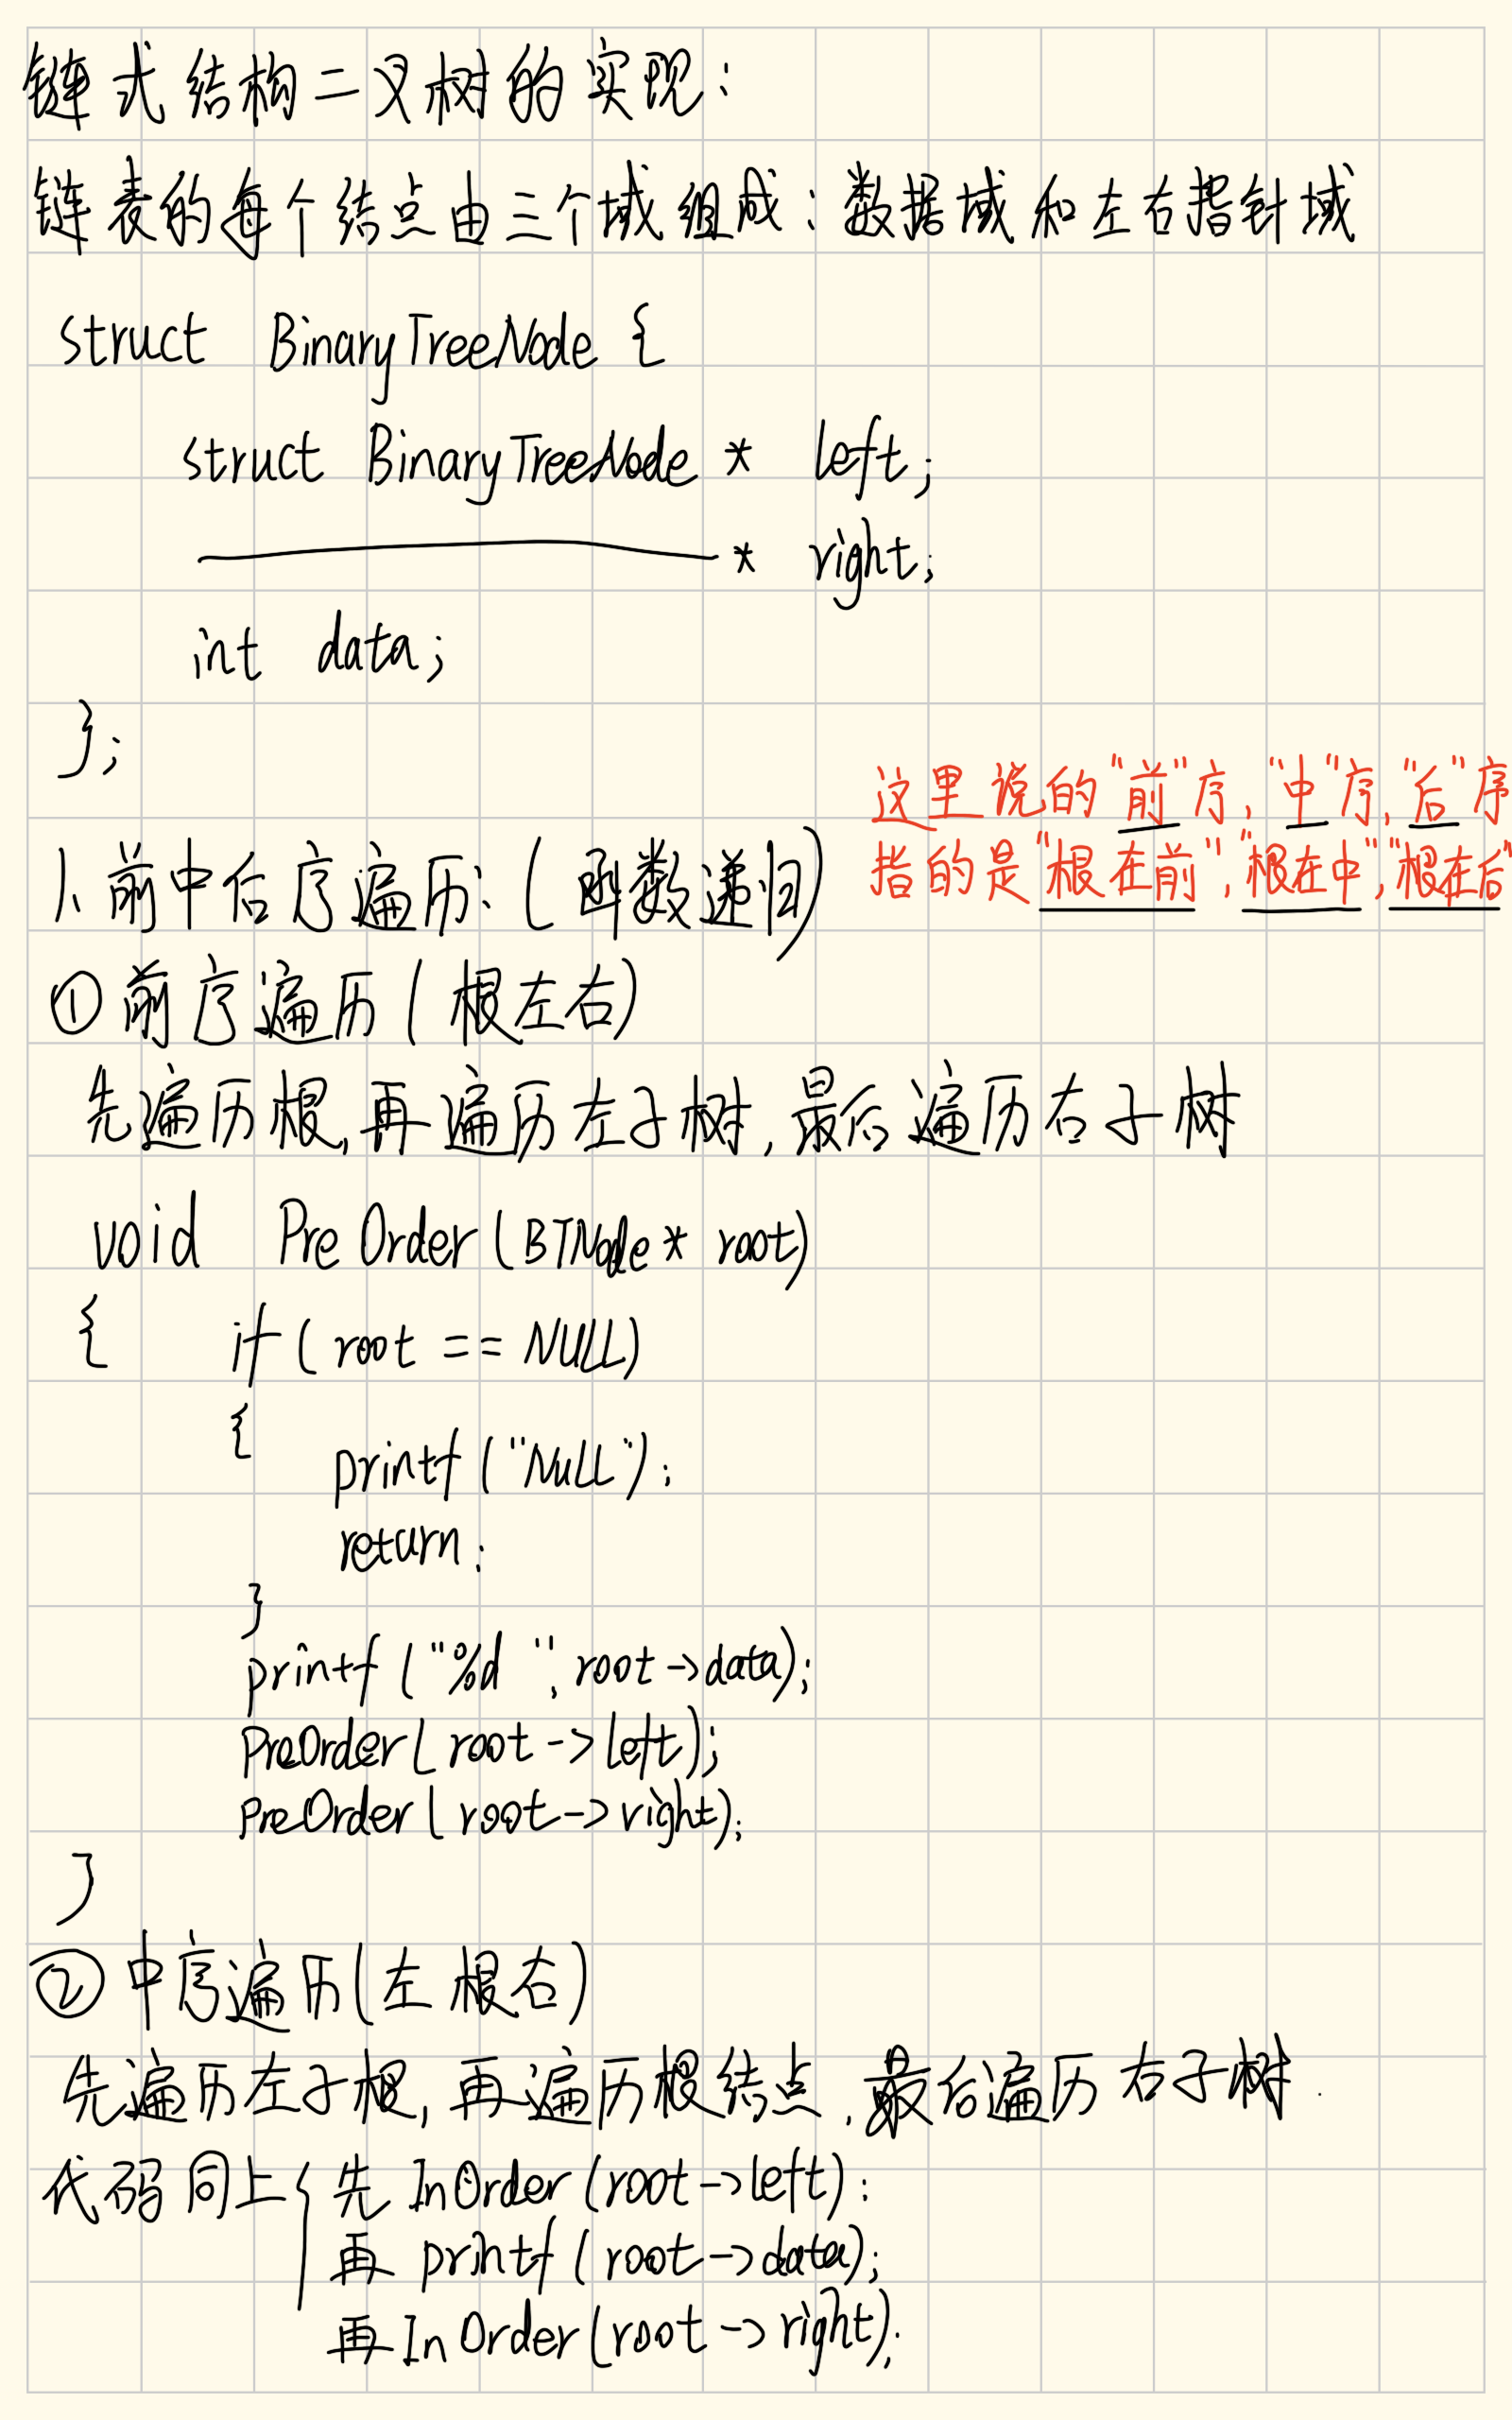 链式结构二叉树的实现:
链表的每个结点由三个域组成:数据域和左右指针域
struct BinaryTreeNode {
struct BinaryTreeNode * left;
* right;
int data;
};
这里说的"前"序,"中"序,"后"序
指的是"根在前","根在中","根在后"
1、前中后序遍历:(函数递归)
①前序遍历(根左右)
先遍历根,再遍历左子树,最后遍历右子树
void PreOrder(BTNode* root)
{ if(root == NULL)
{
printf("NULL");
return;
}
printf("%d ",root->data);
PreOrder(root->left);
PreOrder(root->right);
}
②中序遍历(左根右)
先遍历左子根,再遍历根结点,最后遍历右子树.
代码同上{先InOrder(root->left);
再printf(root->data);
再InOrder(root->right);